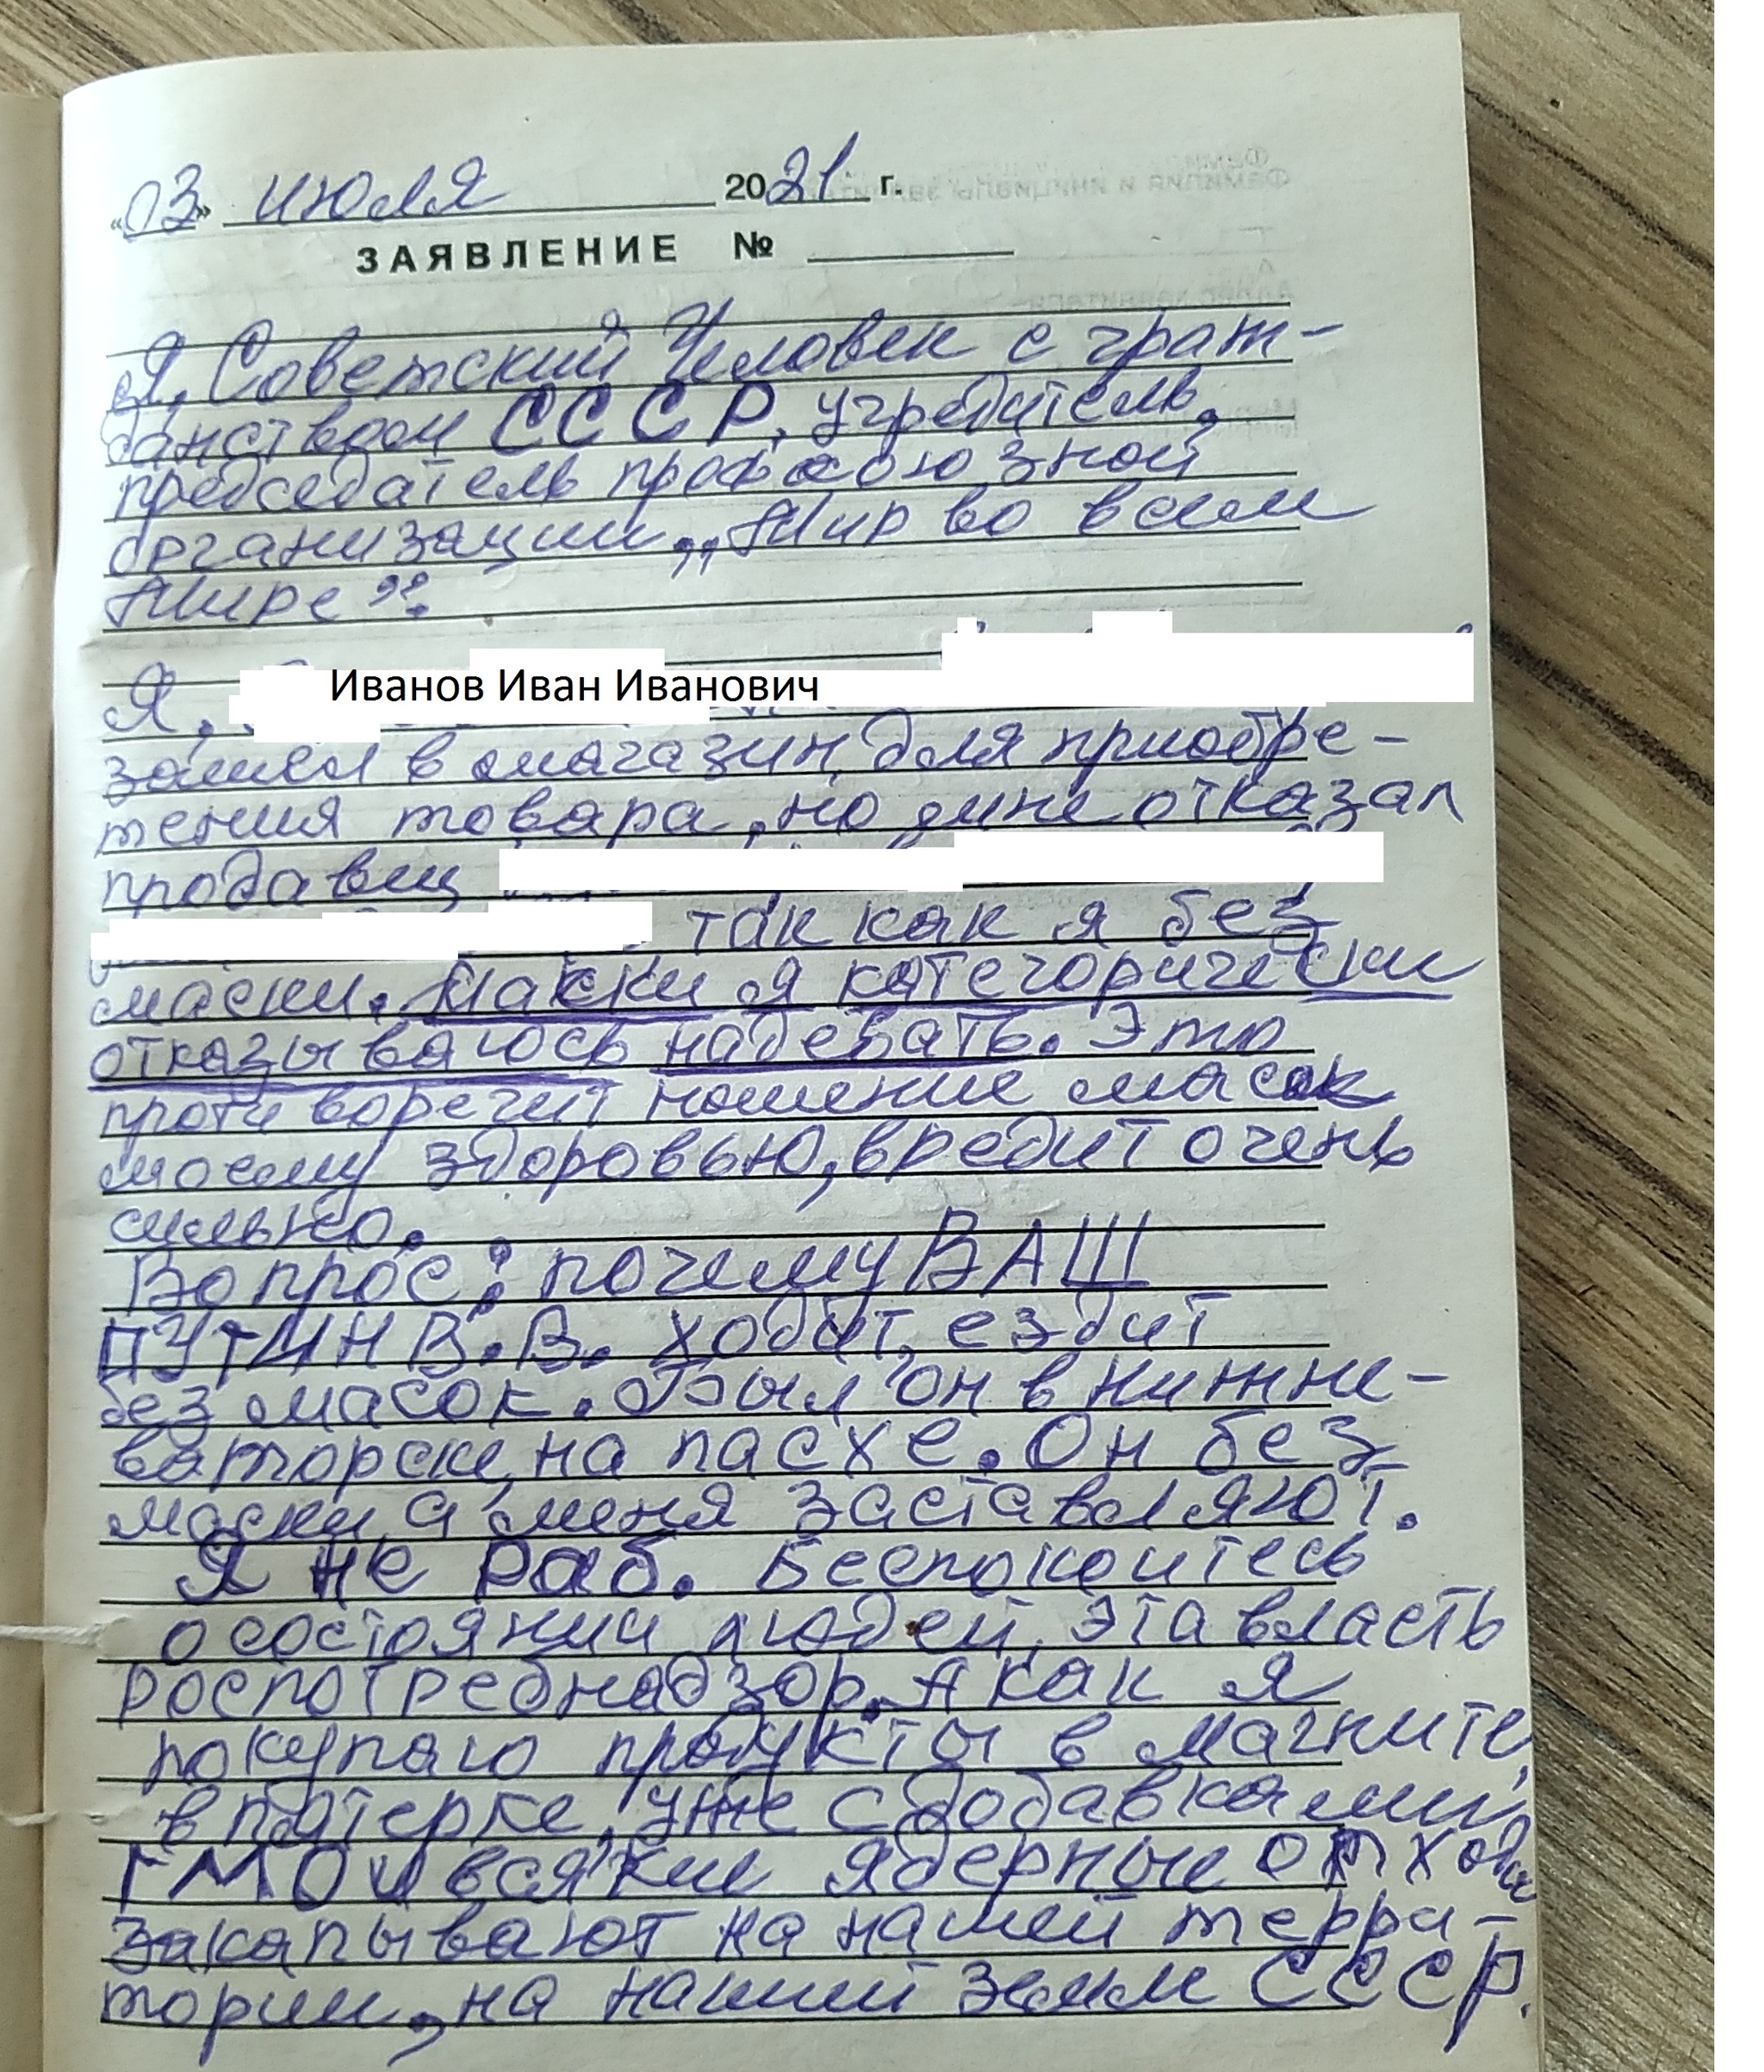 «03» июля 2021 г.
ЗАЯВЛЕНИЕ №
Я, Советский Человек с граж-
данством СССР, учредитель,
председатель профсоюзной
организации „Мир во всем
Мире".
Я, Иванов Иван Иванович
зашел в магазин, для приобре-
тения товара, но мне отказал
продавец
так как я без
маски. Маски я категорически
отказываюсь надевать. Это
противоречит ношение масок
моему здоровью, вредит очень
сильно.
Вопрос: почему ВАШ
ПУТИН В.В. ходит, ездит
без масок. Был он в Нижне-
ваторске, на пасхе. Он без
маски, а меня заставляют.
Я не раб. Беспокоитесь
о состоянии людей, эта власть
роспотребнадзор. А как я
покупаю продукты в магните,
в пятерке, уже с добавками,
ГМО и всякие ядерные отходы
закапывают на нашей терри-
тории, на нашей земле СССР.